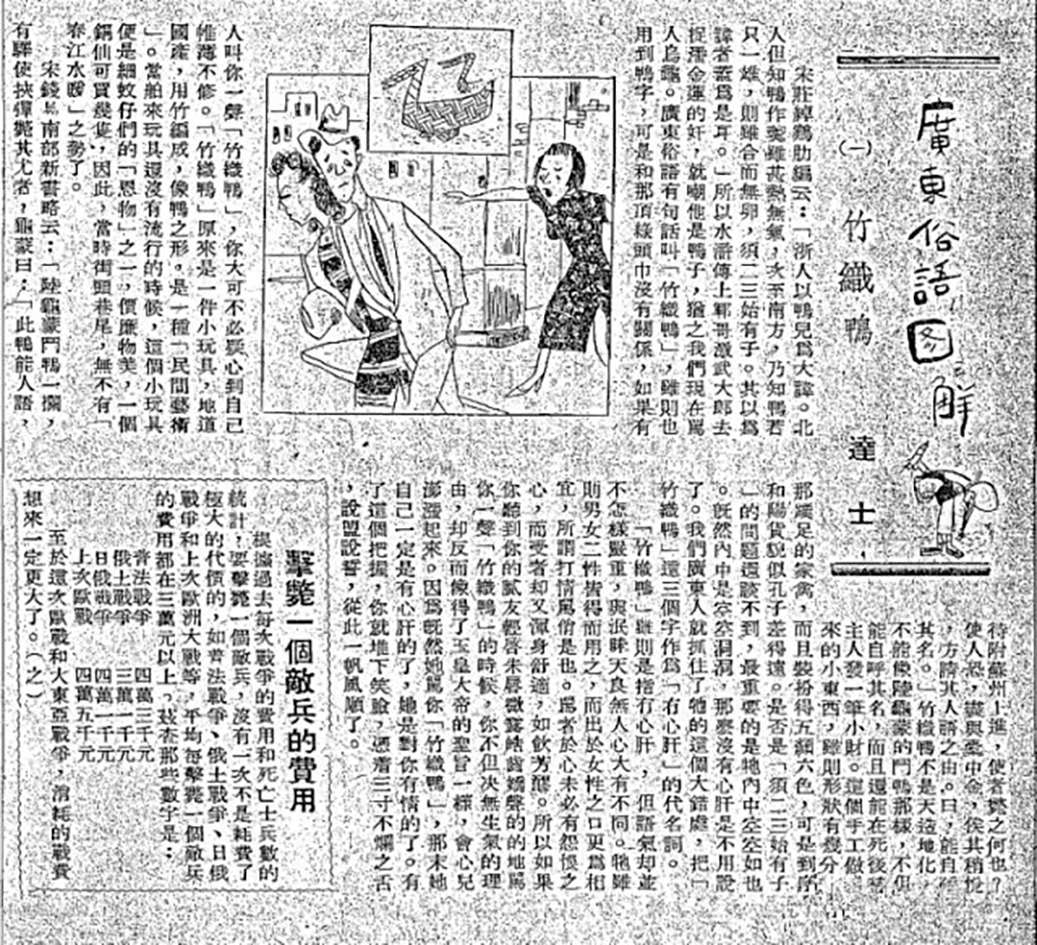 廣東俗語図解
(一) 竹織鴨
達士
宋莊綽鷄肋編云：「浙人以鴨兒爲大諱。北
人但知鴨作羹雖甚熱無氣，次至南方，乃知鴨若
只一雄，則雖合而無卵，須二三始有子。其以爲
諱者蓋爲是耳。」所以水滸傳上鄆哥激武大郎去
捉潘金蓮的奸，就嘲他是鴨子，猶之我們現在罵
人烏龜。廣東俗語有句話叫「竹織鴨」，雖則也
用到鴨字，可是和那頂綠頭巾沒有關係，如果有
人叫你一聲「竹織鴨」，你大可不必疑心到自己
帷薄不修。「竹織鴨」原來是一件小玩具，地道
國產，用竹編成，像鴨之形。是一種「民間藝術
」。當舶來玩具還沒有流行的時候，這個小玩具
便是細蚊仔們的「恩物」之一，價廉物美，一個
銅仙可買幾隻，因此，當時街頭巷尾，無不有「
春江水暖」之勢了。
宋錢易南部新書略云：「陸龜蒙鬥鴨一欄，
有驛使挾彈斃其尤者，龜蒙曰：「此鴨能人語，
待附蘇州上進，使者斃之何也？
使人恐，盡與橐中金，俟其稍悅
，方請其人語之由。曰，能自呼
其名。」竹織鴨不是天造地化，
不能像陸龜蒙的鬥鴨那樣，不但
能自呼其名，而且還能在死後替
主人發一筆小財。這個手工做
來的小東西，雖則形狀有幾分
那蹼足的家禽，而且裝扮得五顏六色，可是到底
和陽貨貌似孔子差得遠。是否是「須二三始有子
」的問題還談不到，最重要的是牠內中空空如也
。既然內中是空空洞洞，那麼沒有心肝是不用說
了。我們廣東人就抓住了牠的這個大錯處，把「
竹織鴨」這三個字作爲「冇心肝」的代名詞。
「竹織鴨」雖則是指冇心肝，但語氣却並
不怎樣嚴重，與泯昧天良無人心大有不同。牠雖
則男女二性皆得而用之，而出於女性之口更爲相
宜，所謂打情罵俏是也。罵者於心未必有怨恨之
心，而受者却又渾身舒適，如飲芳醪。所以如果
你聽到你的膩友輕啓朱唇微露皓齒嬌聲的的地罵
你一聲「竹織鴨」的時候，你不但決無生氣的理
由，却反而像得了玉皇大帝的聖旨一樣，會心兒
澎漲起來。因爲既然她罵你「竹織鴨」，那末她
自己一定是有心肝的了，她是對你有情的了。有
了這個把握，你就堆下笑臉，憑着三寸不爛之舌
，設盟設誓，從此一帆風順了。
擊斃一個敵兵的費用
根據過去每次戰爭的費用和死亡士兵數的
統計，要擊斃一個敵兵，沒有一次不是耗費了
極大的代價的，如普法戰爭、俄土戰爭、日俄
戰爭和上次歐洲大戰等，平均每擊斃一個敵兵
的費用都在三萬元以上。茲查那些數字是：
普法戰爭 四萬三千元
俄土戰爭 三萬一千元
日俄戰爭 四萬一千元
上次歐戰 四萬五千元
至於這次歐戰和大東亞戰爭，消耗的戰費
想來一定更大了。（之）